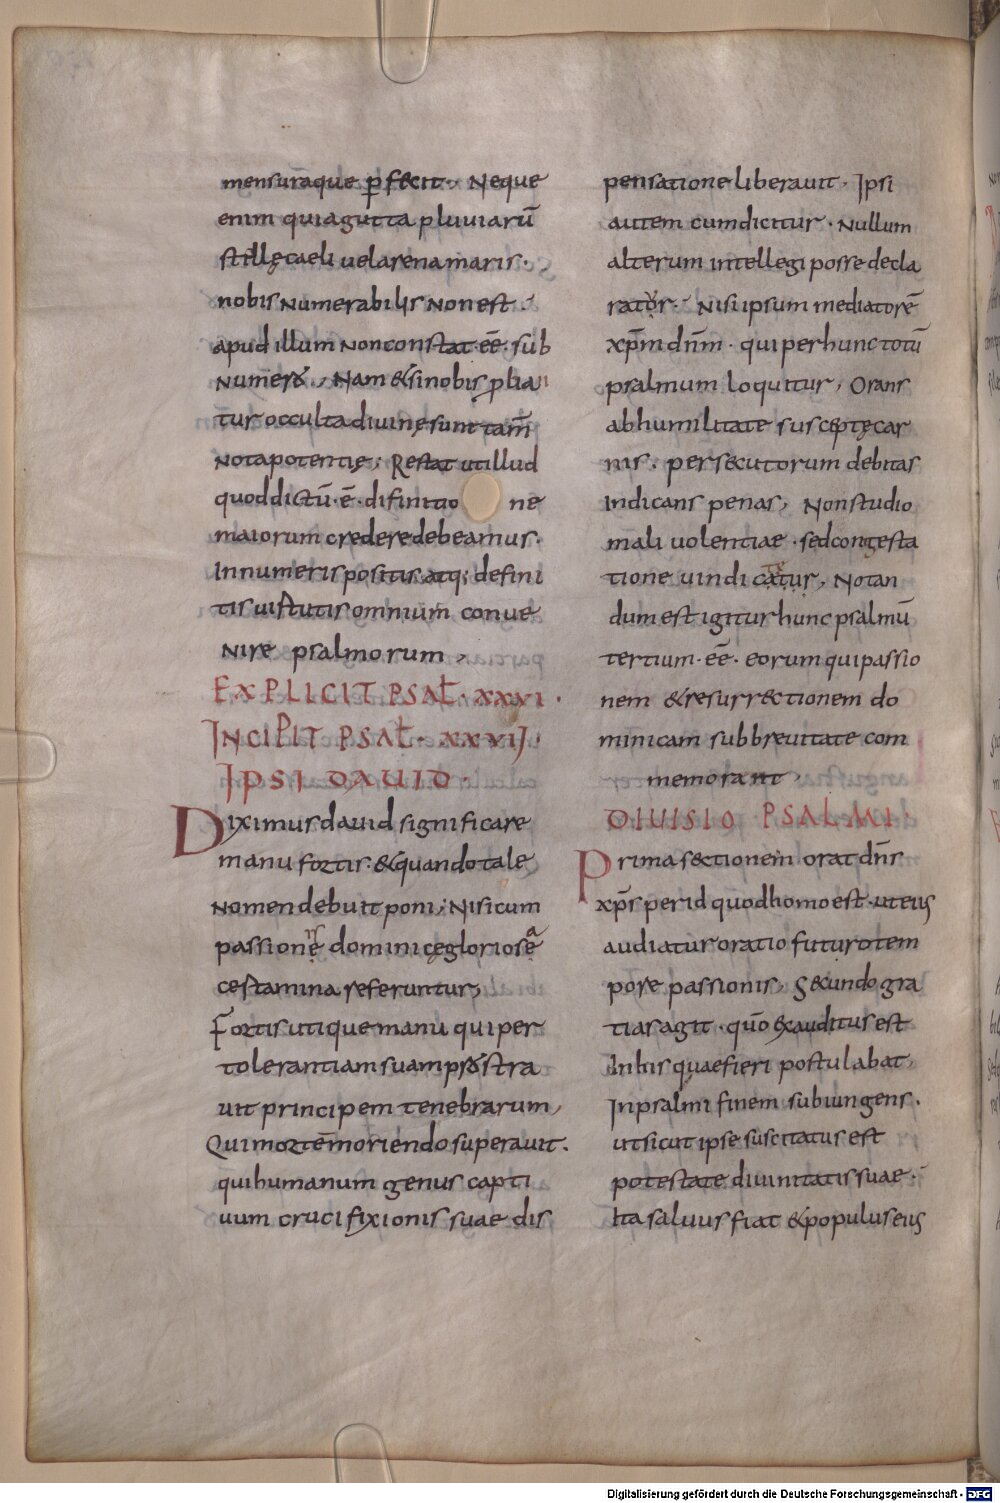 mensuraque ꝑfecit. Neque
enim quia gutta pluuiarū
stillę caeli uel arena maris.
nobis numerabilis non est.
apud illum non constat. eē. sub
numero. Nam & si nobis
tur occulta diuinę sunt tam̄
nota potentię. Restat ut illud
quod dictū. ē. difinitio ne
maiorum credere debeamus.
In numeris positis. atq; defini
tis uirtutis omnium conue
nire psalmorum,
EXPLICIT PSAŁ. XXXVI.
INCIPIT PSAŁ. XXXVII
IPSI DAUID.
Diximus dauid significare
manu fortis. & quando tale
nomen debuit poni; Nisi cum
passione dominicę gloriose
certamina referuntur;
Fortis utique manu qui per
tolerantiam suam prostra
uit principem tenebrarum,
Qui mortē moriendo superauit.
qui humanum genus capti
uum crucifixionis suae dis
pensatione liberauit. Ipsi
autem cum dicitur. Nullum
alterum intellegi posse decla
rator. Nisi ipsum mediatorē
xp̄m dn̄m. qui per hunc totū
psalmum loquitur, Orans
ab humilitate susceptę car
nis. persecutorum debitas
Indicans penas, Non studio
mali uolentiae. sed congesta
tione uindicatur, Notan
dum est igitur hunc psalmū
tertium. eē. eorum qui passio
nem & resurrectionem do
minicam sub breuitate com
memorant,
DIUISIO PSALMI.
Prima sectionem orat dn̄s
xp̄s per id quod homo est. ut eius
audiatur oratio futuro tem
pore passionis, Secundo gra
tias agit. quō exauditus est
In his quae fieri postulabat,
In psalmi finem subiungens.
ut sicut ipse suscitatus est
potestate diuinitatis suae.
Ita saluus fiat & populus eius
Digitalisierung gefördert durch die Deutsche Forschungsgemeinschaft - DFG